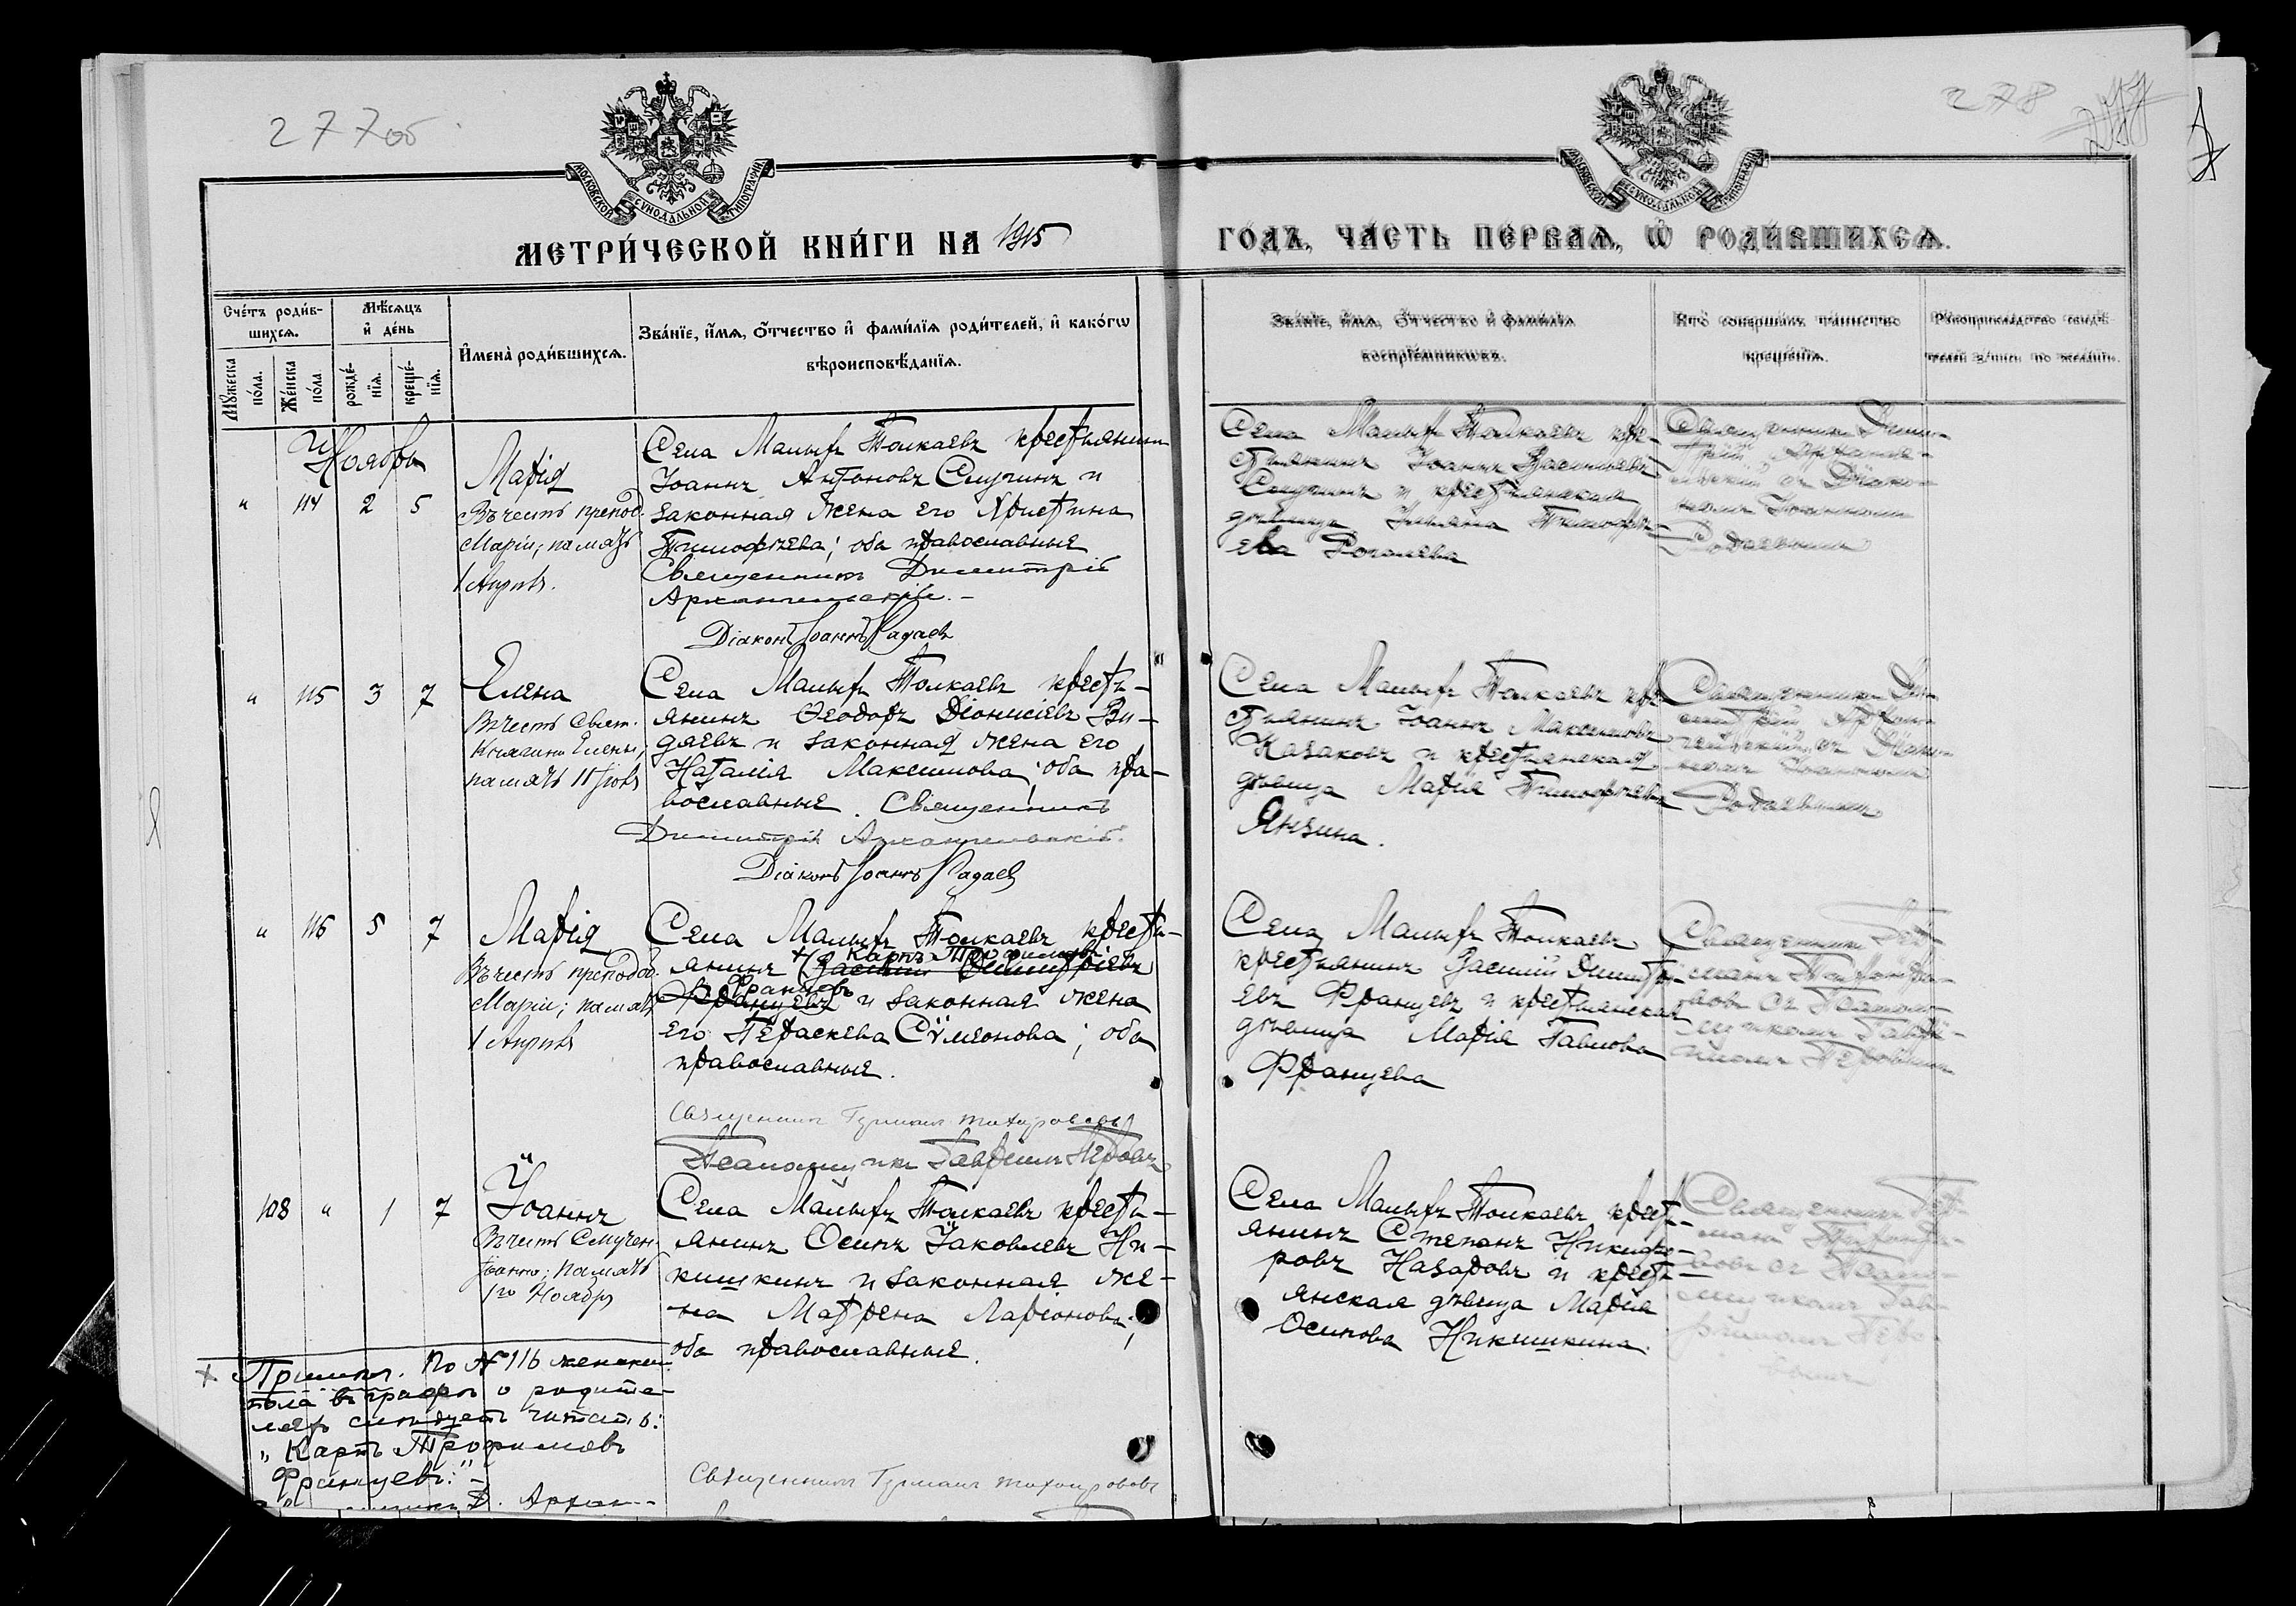 277об
278
МОСКОВСКОЙ СѴНОДАЛЬНОЙ ТИПОГРАФІИ
МОСКОВСКОЙ СѴНОДАЛЬНОЙ ТИПОГРАФІИ
МЕТРИ́ЧЕСКОЙ КНИ́ГИ НА 1915
ГО́ДЪ, ЧА́СТЬ ПЕ́РВАѦ, Ѡ҆ РОДИ́ВШИХСѦ.
Сче́тъ роди́в-
шихсѧ.
Мꙋ́жеска по́ла.
Же́нска по́ла
Мѣ́сѧцъ
и҆ де́нь
рожде́-
нїѧ.
креще́-
нїѧ.
И҆мена̀ роди́вшихсѧ.
Зва́нїе, и҆́мѧ, ѻ҆́тчество и҆ фами́лїѧ роди́телей, и҆ како́гѡ
вѣроисповѣ́данїѧ.
Зва́нїе, и҆́мѧ, ѻ҆́тчество и҆ фами́лїѧ
воспрїе́мникѡвъ.
Кто̀ соверша́лъ та́инство
креще́нїѧ.
Рꙋкоприкла́дство свидѣ́-
телей за́писи по жела́нїю.
Ноябрь
" 114 2 5
Марія
Въ честь препод.
Маріи; память
1 Апрѣля.
Села Малыхъ Толкаевъ крестьянинъ
Іоаннъ Антоновъ Слугинъ и
законная жена его Христина
Тимофѣева; оба православные
Священникъ Димитрій
Архангельскій.
Діаконъ Іоаннъ Радаевъ
Села Малыхъ Толкаевъ кре-
стьянинъ Іоаннъ Васильевъ
Слугинъ и крестьянская
дѣвица Ульяна Тимофѣ-
ева Рогалева
Священникъ Дими-
трій Арханге-
льскій съ Діако-
номъ Іоанномъ
Радаевымъ
" 115 3 7
Елена
Въ честь Свят.
Княгини Елены,
память 11 Іюля
Села Малыхъ Толкаевъ кресть-
янинъ Ѳеодоръ Діонисіевъ Ви-
дяевъ и законная жена его
Наталія Максимова; оба пра-
вославные. Священникъ
Димитрій Архангельскій.
Діаконъ Іоаннъ Радаевъ
Села Малыхъ Толкаевъ кре-
стьянинъ Іоаннъ Максимовъ
Казаковъ и крестьянская
дѣвица Марія Тимофѣева
Янзина.
Священникъ Ди-
митрій Архан-
гельскій съ Діако-
номъ Іоанномъ
Радаевымъ
" 116 5 7
Марія
Въ честь преподоб.
Маріи; память
1 Апрѣля
Села Малыхъ Толкаевъ кресть-
Карпъ Трофимовъ
янинъ + (Василій Димитріевъ
Францовъ
Францевъ и законная жена
его Параскева Сѵмеонова; оба
православные.
Священникъ Германъ Тихомировъ
Псаломщикъ Гавріилъ Перовъ
Села Малыхъ Толкаевъ
крестьянинъ Василій Димитрі-
евъ Францевъ и крестьянская
дѣвица Марія Павлова
Францева
Священникъ Гер-
манъ
съ Псало-
мщикомъ Гаврі-
иломъ Перовымъ
108 " 1 7
Іоаннъ
Въ честь Св. мучен.
Іоанна; память
1го Ноября
Села Малыхъ Толкаевъ кресть-
янинъ Осипъ Іаковлевъ Ни-
кишкинъ и законная же-
на Матрена Ларіонова;
оба православные.
Священникъ Германъ Тихомировъ
Села Малыхъ Толкаевъ кресть-
янинъ Степанъ Никифо-
ровъ Назаровъ и кресть-
янская дѣвица Марія
Осипова Никишкина.
Священникъ Гер-
манъ
съ Псало-
мщикомъ Гав-
ріиломъ Перо-
вымъ
+ Примѣч. По № 116 женскаго
пола въ графѣ о родите-
ляхъ слѣдуетъ читать:
„Карпъ Трофимовъ
Францевъ."
Д. Архан-